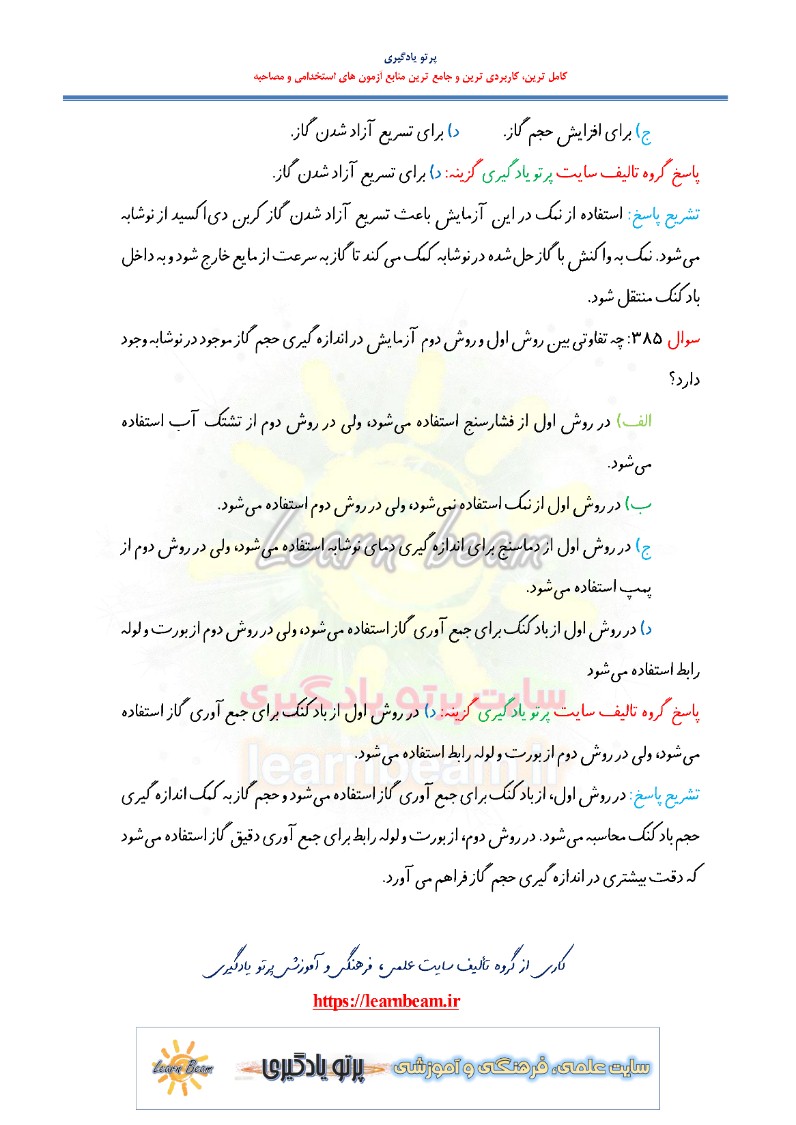 پرتو یادگیری
کامل ترین، کاربردی ترین و جامع ترین منابع آزمون های استخدامی و مصاحبه
ج) برای افزایش حجم گاز. د) برای تسریع آزاد شدن گاز.
پاسخ گروه تالیف سایت پرتو یادگیری گزینه: د) برای تسریع آزاد شدن گاز.
تشریح پاسخ: استفاده از نمک در این آزمایش باعث تسریع آزاد شدن گاز کربن دی‌اکسید از نوشابه
می‌شود. نمک به واکنش با گاز حل شده در نوشابه کمک می کند تا گاز به سرعت از مایع خارج شود و به داخل
بادکنک منتقل شود.
سوال ۳۸۵: چه تفاوتی بین روش اول و روش دوم آزمایش در اندازه گیری حجم گاز موجود در نوشابه وجود
دارد؟
الف) در روش اول از فشارسنج استفاده می‌شود، ولی در روش دوم از تشتک آب استفاده
می‌شود.
ب) در روش اول از نمک استفاده نمی‌شود، ولی در روش دوم استفاده می‌شود.
ج) در روش اول از دماسنج برای اندازه گیری دمای نوشابه استفاده می‌شود، ولی در روش دوم از
پمپ استفاده می‌شود.
د) در روش اول از بادکنک برای جمع آوری گاز استفاده می‌شود، ولی در روش دوم از بورت و لوله
رابط استفاده می‌شود
پاسخ گروه تالیف سایت پرتو یادگیری گزینه: د) در روش اول از بادکنک برای جمع آوری گاز استفاده
می‌شود، ولی در روش دوم از بورت و لوله رابط استفاده می‌شود.
تشریح پاسخ: در روش اول، از بادکنک برای جمع آوری گاز استفاده می‌شود و حجم گاز به کمک اندازه گیری
حجم بادکنک محاسبه می‌شود. در روش دوم، از بورت و لوله رابط برای جمع آوری دقیق گاز استفاده می‌شود
که دقت بیشتری در اندازه گیری حجم گاز فراهم می آورد.
Learn beam
سایت پرتو یادگیری
learnbeam.ir
کاری از گروه تألیف سایت علمی، فرهنگی و آموزشی پرتو یادگیری
https://learnbeam.ir
سایت علمی، فرهنگی و آموزشی پرتو یادگیری Learn Beam